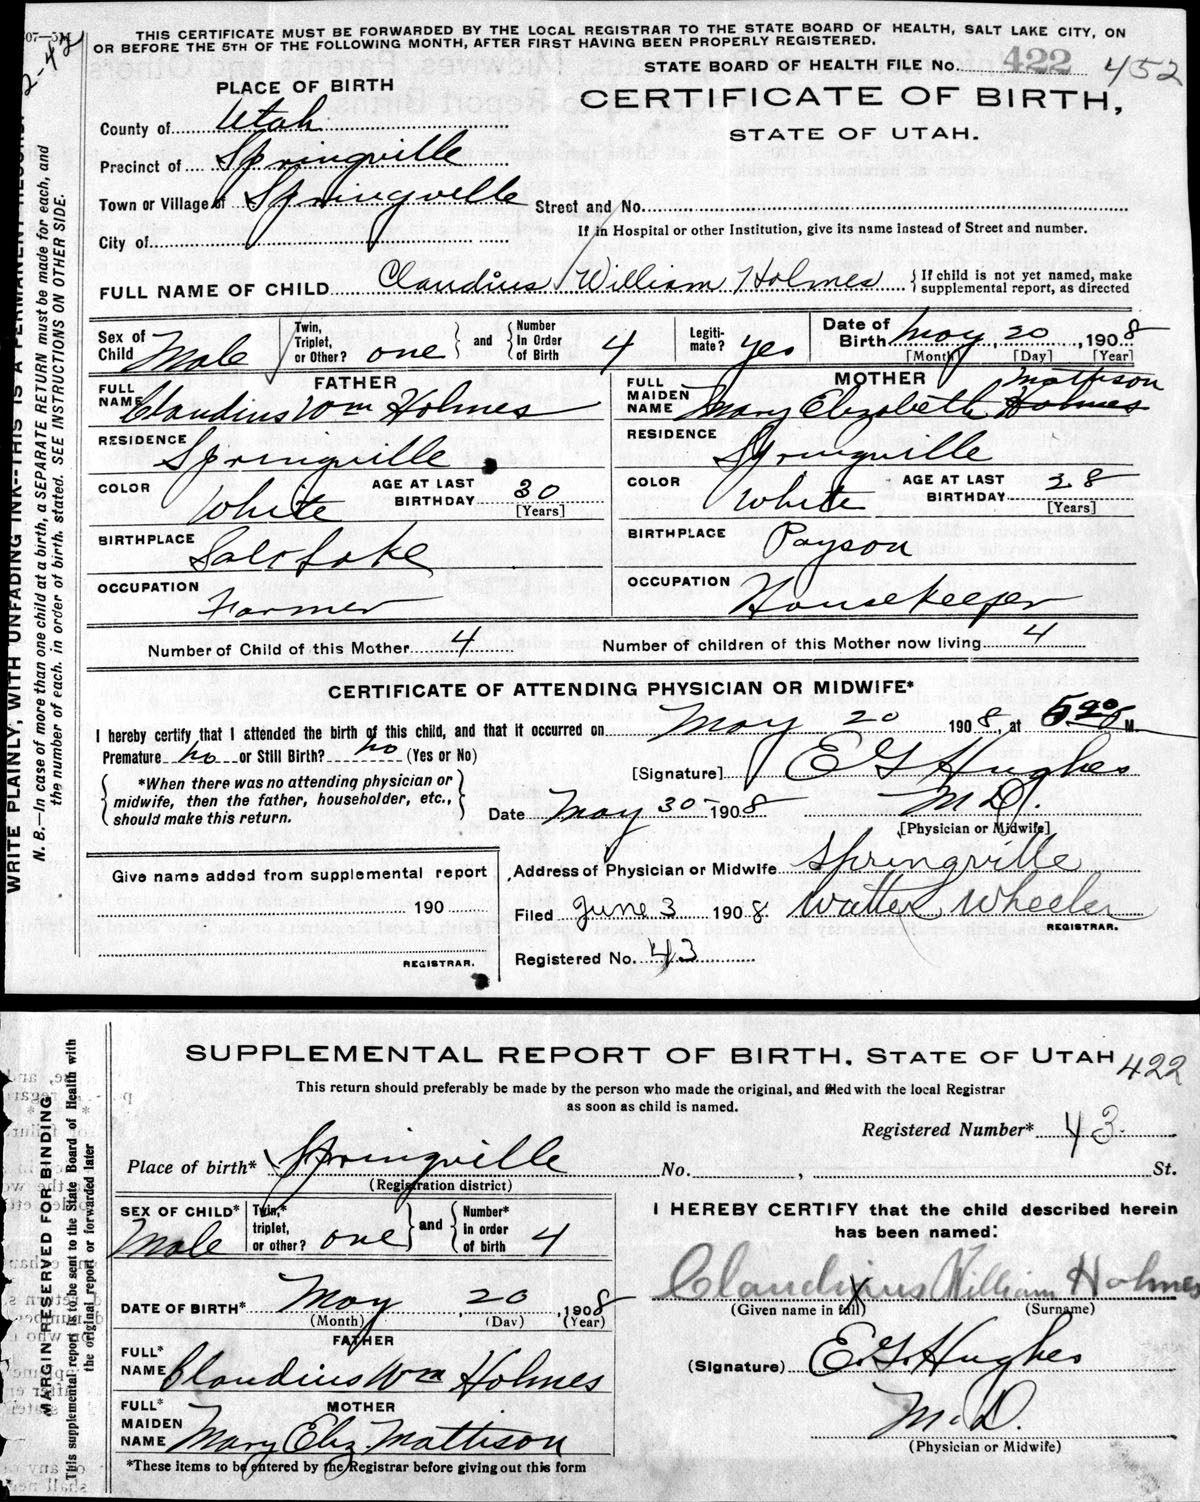 THIS CERTIFICATE MUST BE FORWARDED BY THE LOCAL REGISTRAR TO THE STATE BOARD OF HEALTH, SALT LAKE CITY, ON
OR BEFORE THE 5TH OF THE FOLLOWING MONTH, AFTER FIRST HAVING BEEN PROPERLY REGISTERED.
STATE BOARD OF HEALTH FILE No. 422 452
PLACE OF BIRTH
CERTIFICATE OF BIRTH,
STATE OF UTAH.
County of Utah
Precinct of Springville
Town or Village of Springville Street and No.
City of If in Hospital or other Institution, give its name instead of Street and number.
FULL NAME OF CHILD Claudius William Holmes { If child is not yet named, make supplemental report, as directed
Sex of Child Male Twin, Triplet, or Other? one } and { Number In Order of Birth 4 Legitimate? yes Date of Birth May 20, 1908
[Month] [Day] [Year]
FATHER MOTHER
FULL NAME Claudius Wm Holmes FULL MAIDEN NAME Mary Elizabeth Holmes Mattison
RESIDENCE Springville RESIDENCE Springville
COLOR White AGE AT LAST BIRTHDAY 30 [Years] COLOR White AGE AT LAST BIRTHDAY 28 [Years]
BIRTHPLACE Salt Lake BIRTHPLACE Payson
OCCUPATION Farmer OCCUPATION Housekeeper
Number of Child of this Mother 4 Number of children of this Mother now living 4
CERTIFICATE OF ATTENDING PHYSICIAN OR MIDWIFE*
I hereby certify that I attended the birth of this child, and that it occurred on May 20 1908, at M.
Premature no or Still Birth? no (Yes or No)
[Signature] E G Hughes
*When there was no attending physician or
midwife, then the father, householder, etc.,
should make this return.
Date May 30 1908 M D.
[Physician or Midwife]
Give name added from supplemental report
190
REGISTRAR.
Address of Physician or Midwife Springville
Filed June 3 1908. Walter Wheeler
REGISTRAR.
Registered No. 43
WRITE PLAINLY, WITH UNFADING INK--THIS IS A PERMANENT RECORD.
N. B.—In case of more than one child at a birth, a SEPARATE RETURN must be made for each, and
the number of each, in order of birth, stated. SEE INSTRUCTIONS ON OTHER SIDE.
SUPPLEMENTAL REPORT OF BIRTH, STATE OF UTAH 422
This return should preferably be made by the person who made the original, and filed with the local Registrar
as soon as child is named.
Registered Number* 43
Place of birth* Springville No. , St.
(Registration district)
SEX OF CHILD* Male Twin,* triplet, or other? one } and { Number* in order of birth 4
I HEREBY CERTIFY that the child described herein
has been named:
Claudius William Holmes
(Given name in full) (Surname)
DATE OF BIRTH* May, 20, 1908
(Month) (Day) (Year)
FATHER
FULL* NAME Claudius Wm Holmes
(Signature) E. G. Hughes
M. D.
(Physician or Midwife)
MOTHER
FULL* MAIDEN NAME Mary Eliz. Mattison
*These items to be entered by the Registrar before giving out this form
MARGIN RESERVED FOR BINDING
This supplemental report is to be sent to the State Board of Health with
the original report or forwarded later